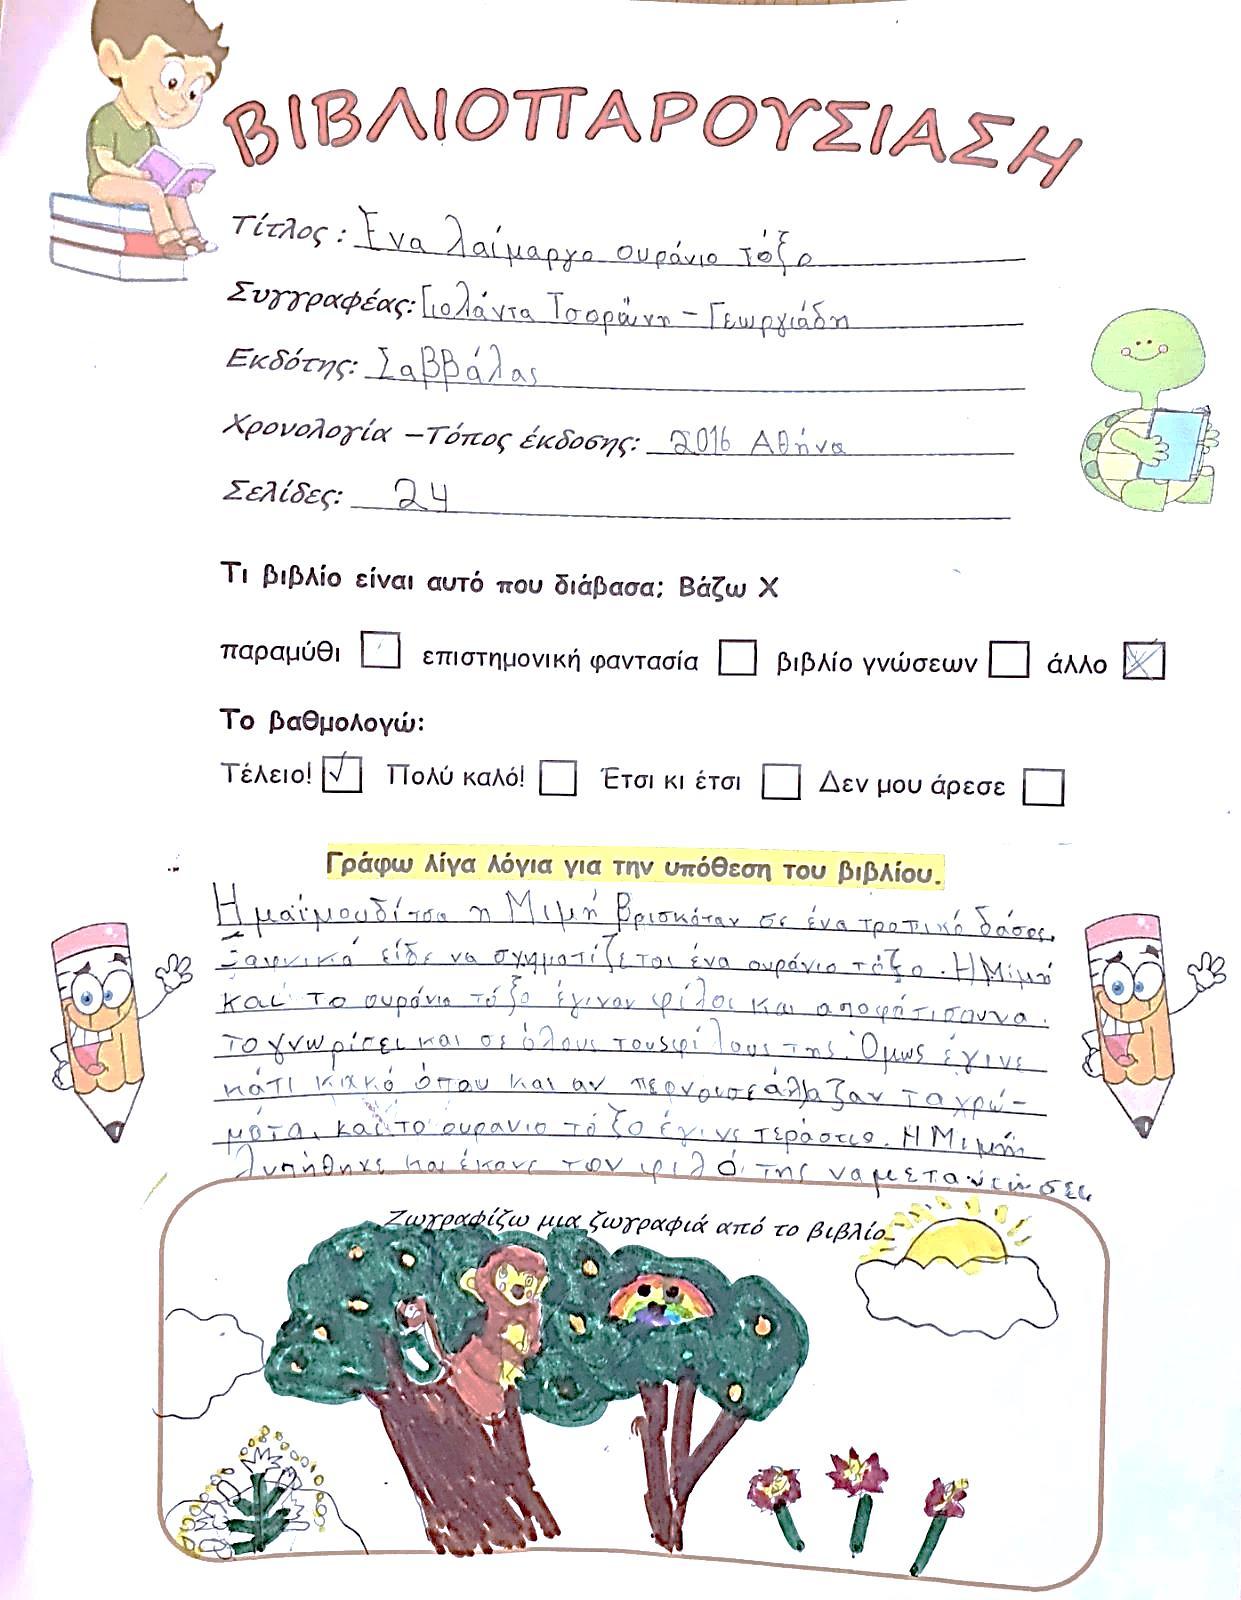 ΒΙΒΛΙΟΠΑΡΟΥΣΙΑΣΗ
Τίτλος: Ένα λαίμαργο ουράνιο τόξο
Συγγραφέας: Γιολάντα Τσορώνη-Γεωργιάδη
Εκδότης: Σαββάλας
Χρονολογία –Τόπος έκδοσης: 2016 Αθήνα
Σελίδες: 24
Τι βιβλίο είναι αυτό που διάβασα; Βάζω Χ
παραμύθι επιστημονική φαντασία βιβλίο γνώσεων άλλο
Το βαθμολογώ:
Τέλειο! Πολύ καλό! Έτσι κι έτσι Δεν μου άρεσε
Γράφω λίγα λόγια για την υπόθεση του βιβλίου.
Η μαϊμουδίτσα η Μιμή βρισκόταν σε ένα τροπικό δάσος.
Ξαφνικά είδε να σχηματίζεται ένα ουράνιο τόξο. Η Μιμή
και το ουράνιο τόξο έγιναν φίλοι και αποφάτισαν να
το γνωρίσει και σε όλους τους φίλους της. Όμως έγινε
κάτι κακό όπου και αν περνούσε άλαζαν τα χρώ-
ματα, και το ουράνιο τόξο έγινε τεράστιο. Η Μιμή
λυπήθηκε και έκανε τον φιλό της να μετανιώσει
Ζωγραφίζω μια ζωγραφιά από το βιβλίο